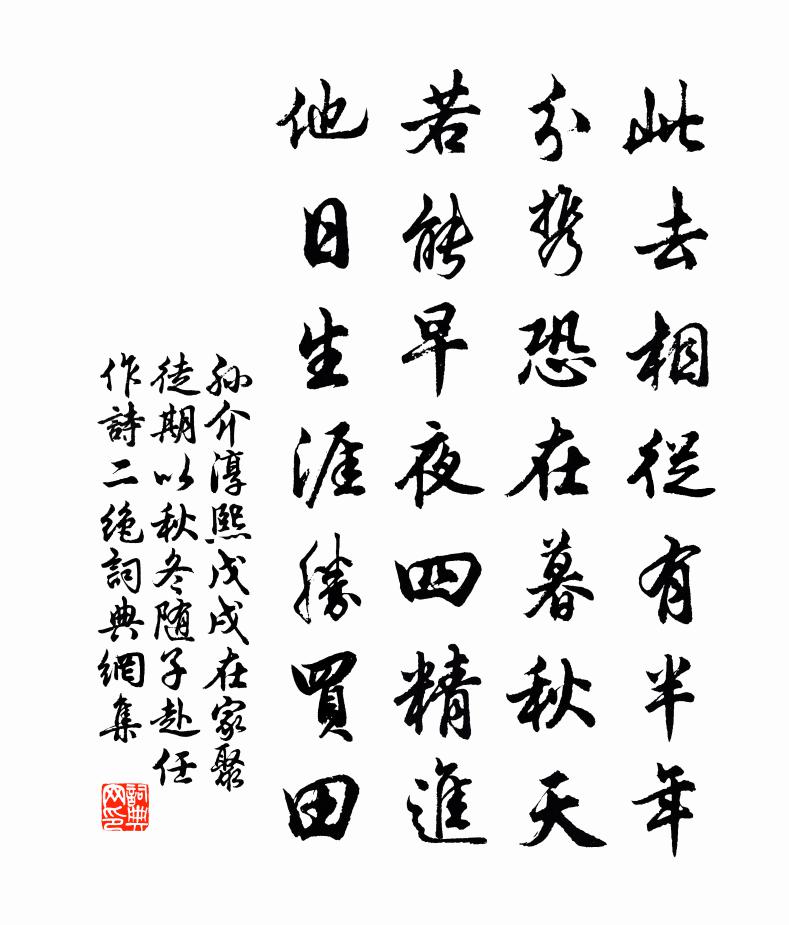 此去相從有半年
分携恐在暮秋天
若能早夜四精進
他日生涯勝買田
孙介淳熙戊戌在家聚
徒期以秋冬随子赴任
作詩二绝詞典網集
詞典网印